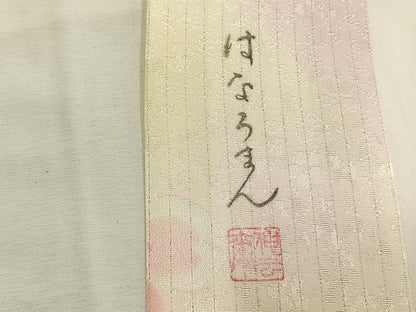 はなろまん